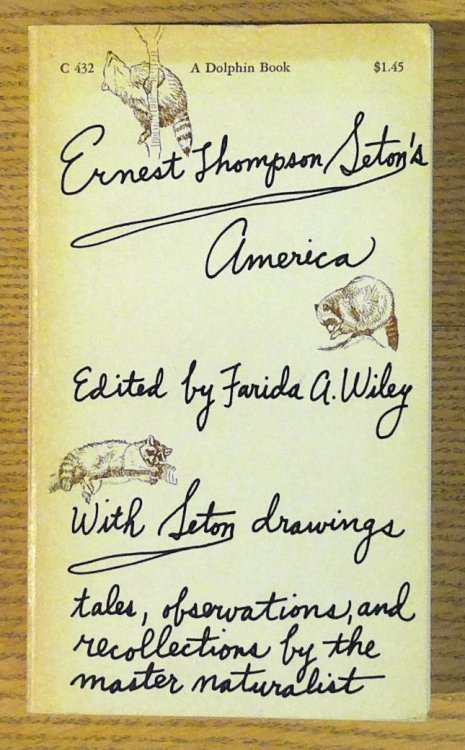 C 432 A Dolphin Book $1.45
Ernest Thompson Seton's
America
Edited by Farida A. Wiley
With Seton drawings
tales, observations, and
recollections by the
master naturalist